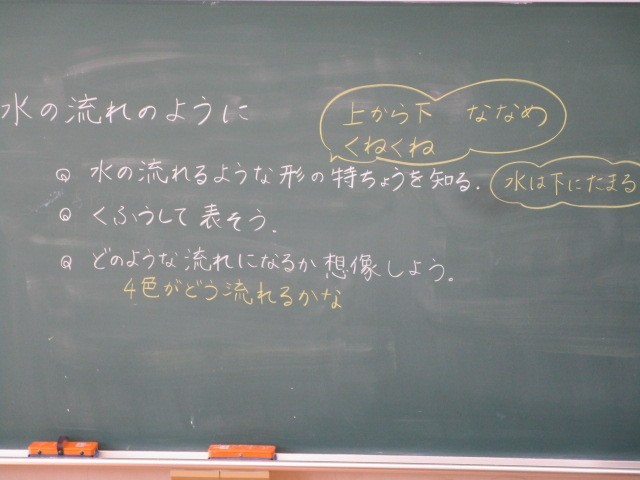 水の流れのように
上から下 ななめ
くねくね
◎ 水の流れるような形の特ちょうを知る.
水は下にたまる
◎ くふうして表そう.
◎ どのような流れになるか想像しよう。
4色がどう流れるかな